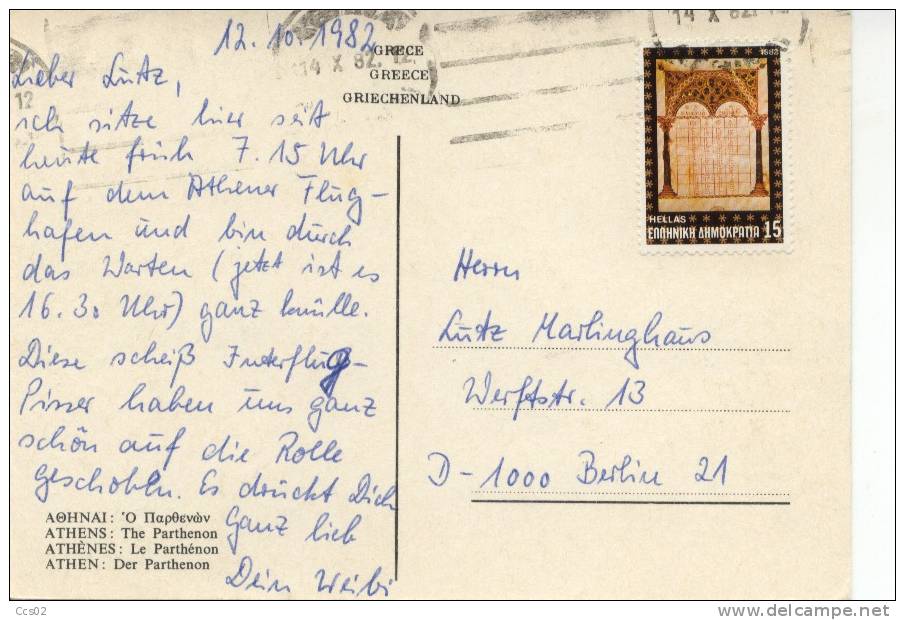 12.10.1982
Lieber Lutz,
ich sitze hier seit
heute früh 7.15 Uhr
auf dem Athener Flug-
hafen und bin durch
das Warten (jetzt ist es
16.30 Uhr) ganz knülle.
Diese scheiß Interflug-
Pisser haben uns ganz
schön auf die Rolle
geschoben. Es drückt Dich
Ganz lieb
Dein
ΑΘΗΝΑΙ: Ὁ Παρθενών
ATHENS: The Parthenon
ATHÈNES: Le Parthénon
ATHEN: Der Parthenon
GRECE
GREECE
GRIECHENLAND
14 X 82. 12
12
14 X 82. 12
1982
HELLAS
ΕΛΛΗΝΙΚΗ ΔΗΜΟΚΡΑΤΙΑ 15
Herrn
Lutz Marlinghaus
Werftstr. 13
D-1000 Berlin 21
Ccs02
www.delcampe.net